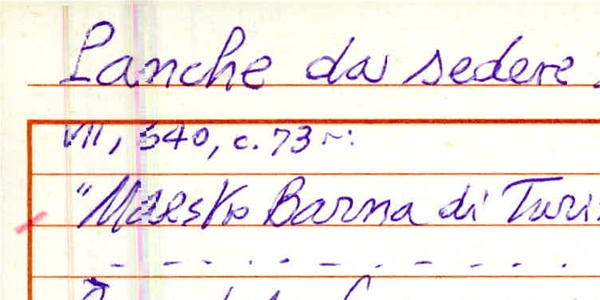 Panche da sedere
VII, 540, c. 73 r:
"Maestro Barna di Turi